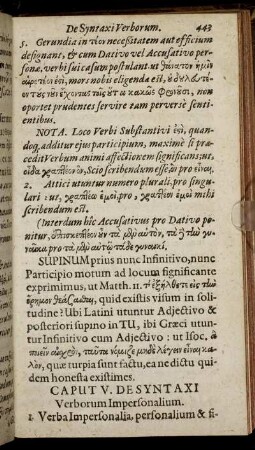 De Syntaxi Verborum. 443
5. Gerundia in τέον necessitatem aut officium
designant, & cum Dativo vel Accusativo per-
sonæ, verbi sui casum postulant: ut
mors nobis eligenda est,
non
oportet prudentes servire tam perverse senti-
entibus.
NOTA. Loco Verbi Substantivi ἐςὶ, quan-
doq; additur ejus participium, maximè si præ-
cedit Verbum animi affectionem significans: ut,
οἶδα γραπτέον, Scio scribendum esse, pro εἶναι.
2. Attici utuntur numero plurali, pro singu-
lari: ut, γραπτέα ἐμοὶ, pro, γραπτέον ἐμοὶ mihi
scribendum est.
(Interdum hîc Accusativus pro Dativo po-
nitur,
SUPINUM prius nunc Infinitivo, nunc
Participio motum ad locum significante
exprimimus, ut Matth. 11. τί ἐξήλθετε εἰς τὴν
ἔρημον θεάσασθαι, quid existis visum in soli-
tudine? Ubi Latini utuntur Adjectivo &
posteriori supino in TU, ibi Græci utun-
tur Infinitivo cum Adjectivo: ut Isoc. ἃ
ποιεῖν αἰσχρὸν, ταῦτα νόμιζε μηδὲ λέγειν εἶναι κα-
λὸν, quæ turpia sunt factu, ea ne dictu qui-
dem honesta existimes.
CAPUT V. DE SYNTAXI
Verborum Impersonalium.
1. Verba Impersonalia, personalium & si-